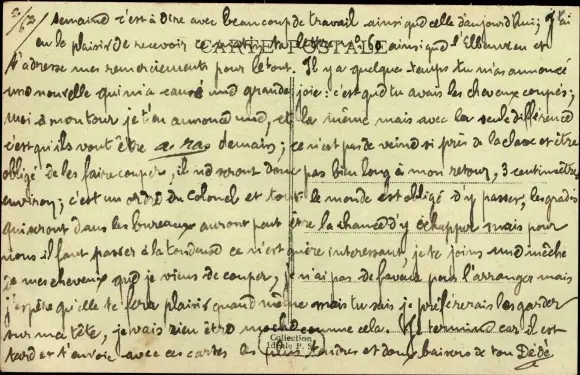 2/62
semaine c'est à dire avec beaucoup de travail ainsi que celle d'aujourd'hui; j'ai
CARTE POSTALE
eu le plaisir de recevoir ce ta lettre n° 60 ainsi que l' et
t'adresse mes remerciements pour le tout. Il y a quelques temps tu m'as annoncé
une nouvelle qui m'a causé une grande joie: c'est que tu avais les cheveux coupés;
moi à mon tour je t'en annonce une, et la même mais avec la seule différence
c'est qu'ils vont être à ras demain; ce n'est pas de veine si près de la classe et être
obligé de les faire couper, ils ne seront donc pas bien long à mon retour, 3 centimètres
environ; c'est un ordre du Colonel et tout le monde est obligé d'y passer, les gradés
qui seront dans les bureaux auront peut être la chance d'y échapper mais pour
nous il faut passer à la tondeuse ce n'est guère interessant, je te joins une mèche
de mes cheveux que je viens de couper, je n'ai pas de faveur pour l'arranger mais
j'espère qu'elle te fera plaisir quand même mais tu sais je préférerais les garder
sur ma tête, je vais rien être moche comme cela. Je termine car il est
tard et t'envoie avec ces cartes les plus tendres et doux baisers de ton Dédé
Collection
Idéale P. S.